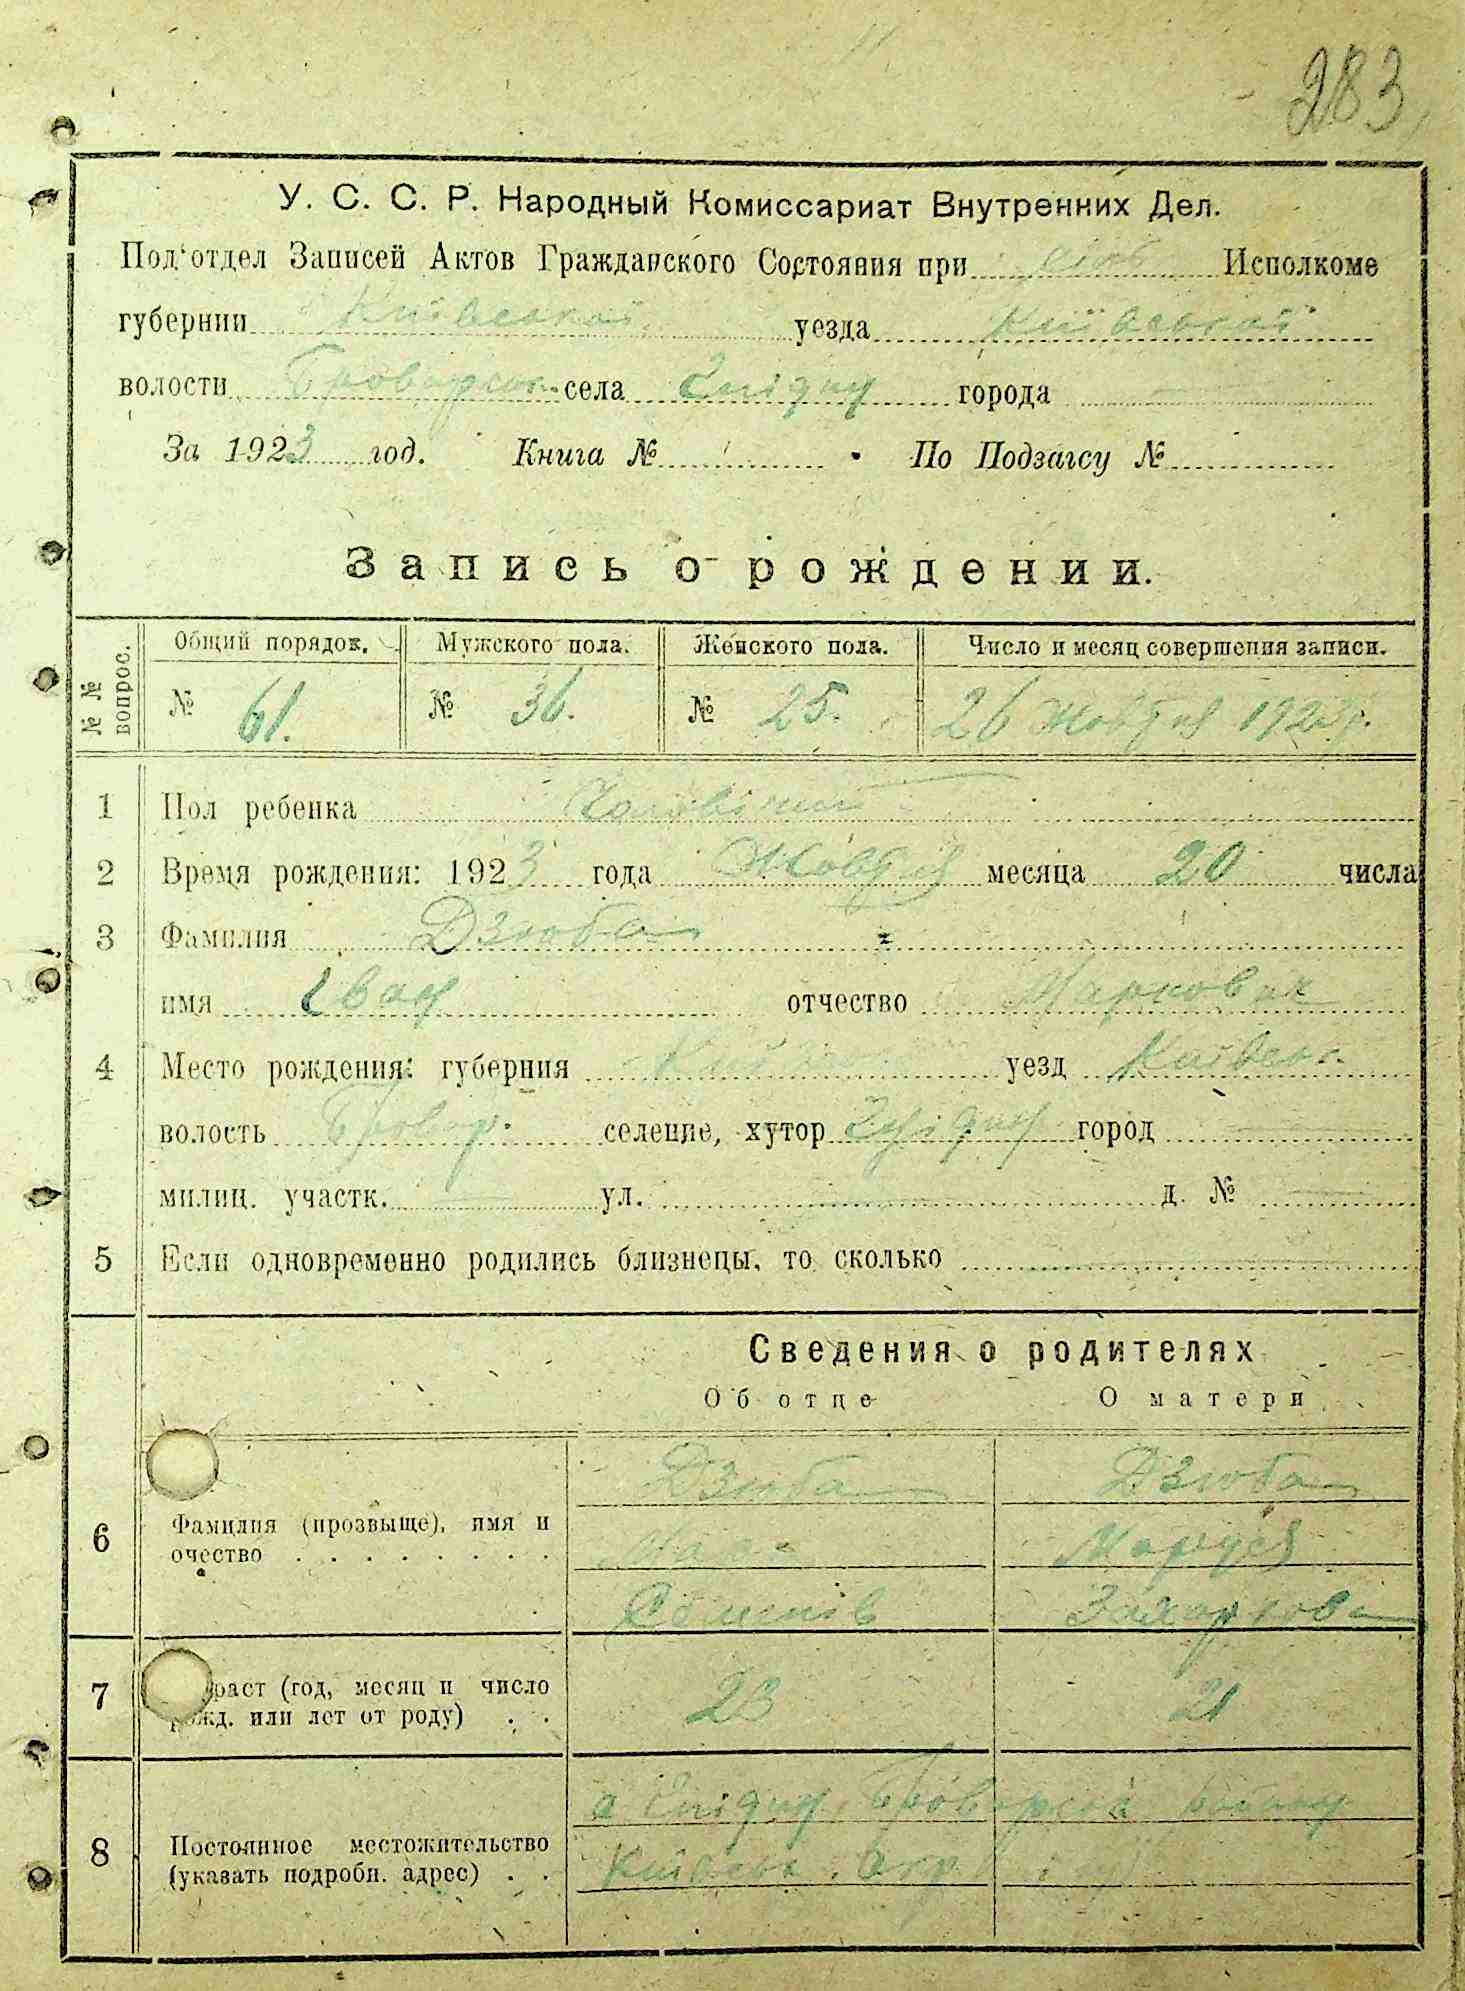 283
У. С. С. Р. Народный Комиссариат Внутренних Дел.
Под'отдел Записей Актов Гражданского Состояния при Исполкоме
губернии Київської уезда Київської
волости Броварськ. села города
За 1923 год. Книга № По Подзагсу №
Запись о рождении.
№ № вопрос. Общий порядок. Мужского пола. Женского пола. Число и месяц совершения записи.
№ 61. № 36. № 25. 26 Жовтня 1923 р.
1 Пол ребенка Чоловічий
2 Время рождения: 1923 года Жовтня месяца 20 числа
3 Фамилия Дзюба
имя Іван отчество Маркович
4 Место рождения: губерния Київськ уезд Київськ.
волость Бровар. селение, хутор город
милиц. участк. ул. д. №
5 Если одновременно родились близнецы, то сколько
Сведения о родителях
Об отце О матери
Дзюба Дзюба
6 Фамилия (прозвыще), имя и
очество
Марко Маруся
Захаркова
7 раст (год, месяц и число
рожд. или лет от роду) 23 21
8 Постоянное местожительство
(указать подробн. адрес)
Броварської
Київськ. Окр.